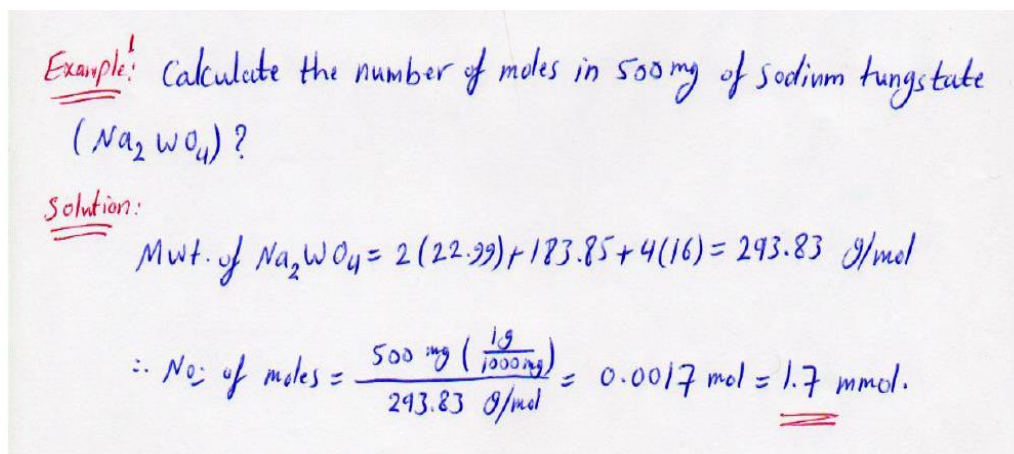 Example: 1 Calculate the number of moles in 500 mg of sodium tungstate
(Na₂WO₄)?
Solution:
Mwt. of Na₂WO₄ = 2(22.99) + 183.85 + 4(16) = 293.83 g/mol
∴ No: of moles = 500 mg (1g/1000mg) / 293.83 g/mol = 0.0017 mol = 1.7 mmol.